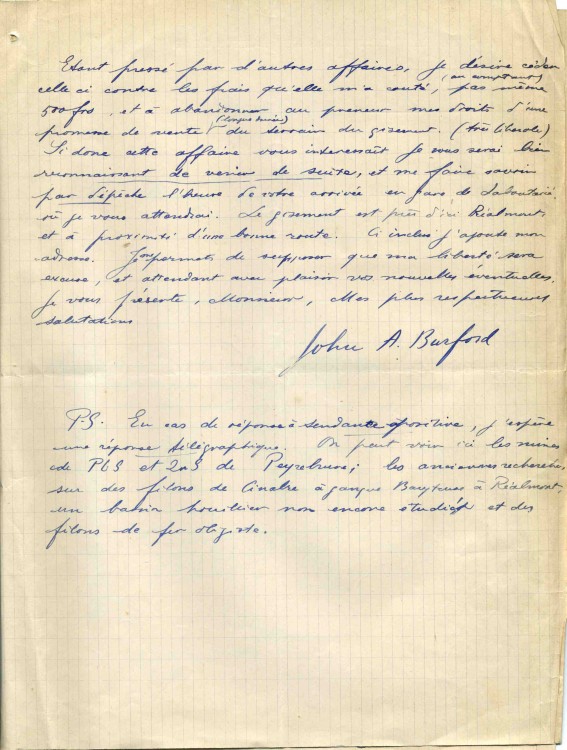 Etant pressé par d'autres affaires, je désire céder
(au comptant)
celle ci contre les frais qu'elle m'a couté, pas même
500 frs, et à abandonner au preneur mes droits d'une
promesse de vente du terrain du gisement. (très libérale)
Si donc cette affaire vous interessait je vous serai bien
reconnaissant de venir de suite, et me faire savoir
par dépêche l'heure de votre arrivée en gare de Laboutarié
où je vous attendrai. Le gisement est près d'ici Réalmont
et à proximité d'une bonne route. Ci inclus j'ajoute mon
adresse. Je me permets de supposer que ma liberté sera
excusé, et attendant avec plaisir vos nouvelles éventuelles.
Je vous présente, Monsieur, Mes plus respectueuses
salutations
John A. Burford
P.S. En cas de réponse à tendance positive, j'espère
une réponse télégraphique. On peut voir ici les mines
de PbS et ZnS de Peyrebrune; les anciennes recherches
sur des filons de Cinabre à gangue Barytense à Réalmont,
un bassin houiller non encore étudié et des
filons de fer oligiste.